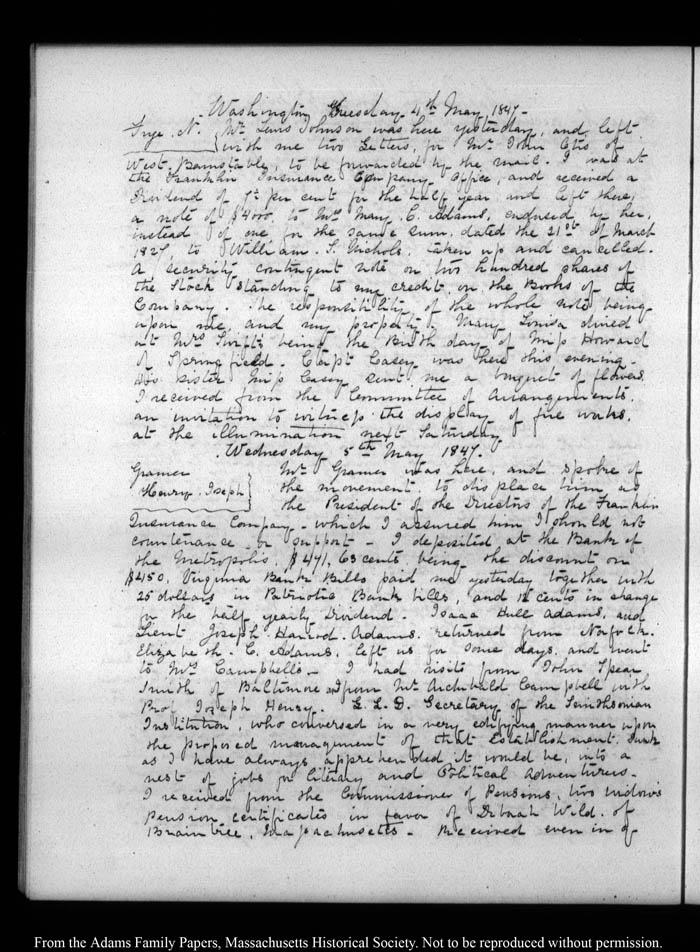 Washington Tuesday 4th May 1847.
Frye. N. Mr. Lewis Johnson was here yesterday, and left
with me two Letters, for Mr. John Otis of
West. Barnstable, to be forwarded by the mail. I was at
the Franklin Insurance Company Office, and received a
Dividend of per cent for the half year and left there,
a note of $4000, to Mrs Mary. C. Adams, endorsed by her,
instead of one for the same sum, dated the 21st of March
1827, to William. S. Nichols, taken up and cancelled.
A, security contingent note on two hundred shares of
the Stock standing to my credit on the Books of the
Company. The responsibility of the whole note being
upon me, and my property. Mary Louisa dined
at Mrs Swift's being the Birth day of Miss Howard
of Springfield. Capt Casey was here this evening.
His sister Miss Casey sent me a bouquet of flowers.
I received from the Committee of Arrangements,
an invitation to witness the display of fire works,
at the illumination next Saturday
Wednesday 5th May 1847.
Gramer Mr. Gramer was here, and spoke of
Henry. Joseph the movement, to displace him as
the President of the Directors of the Franklin
Insurance Company - which I assured him I should not
countenance or support - I deposited at the Bank of
the Metropolis, $471, 63 cents, being the discount on
$450, Virginia Bank Bills paid me yesterday together with
25 dollars in Patriotic Bank bills, and 12 cents in change
for the half yearly Dividend. Isaac Hull Adams, and
Lieut Joseph Harrod. Adams. returned from Norfolk.
Elizabeth. C. Adams, left us for some days, and went
to Mrs Campbell's - I had visits from John Spear
Smith of Baltimore and from Mr. Archibald Campbell with
Prof Joseph Henry. L.L.D. Secretary of the Smithsonian
Institution, who conversed in a very edifying manner upon
the proposed management of that Establishment. Sunk
as I have always apprehended it would be, into a
nest of jobs for literary and Political Adventurers.
I received from the Commissioner of Pensions, two widow's
pension certificates in favor of Deborah Wild. of
Braintree, Massachusetts - Received even in of
From the Adams Family Papers, Massachusetts Historical Society. Not to be reproduced without permission.